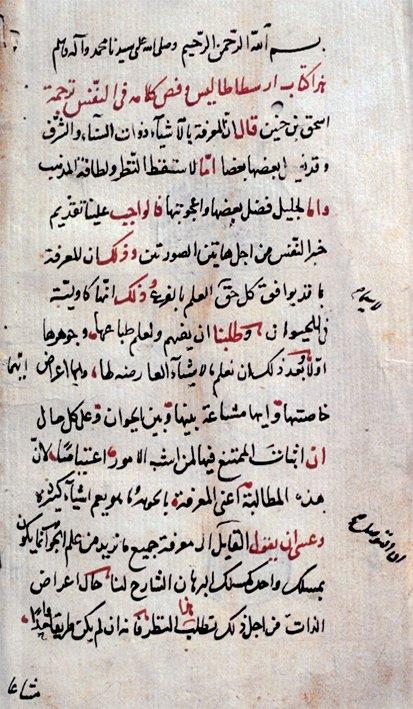 بسم الله الرحمن الرحيم وصلى الله على سيدنا محمد وآله
هذا كتاب ارسطاطاليس وفص كلامه فى النفس ترجمة
اسحق بن حنين قال ان المعرفة بالاشياء ذوات السناء والشرف
وقد بعضها بعضا اما لاستقصاء النظر ولطافة المذهب
واما لجليل فضل بعضها واعجوبتها فالواجب علينا تقديم
خبر النفس من اجل هاتين الصورتين وذلك ان للمعرفة
بها قد يوافق كل حق العلم بالغريب وذلك انها كاوليته
فى الحيوان وطلبنا ان نفهم ولعلم طباعها وجوهرها
اولا بعد ذلك ان نعلم الاشياء العارضة لها وايها اعراض
خاصتها وايها مشاعة بينها وبين الحيوان وعلى كل حال
ان اثبات الممتنع فيها لمن اشد الامور اعتياصا لان
هذه المطالبة اعنى المعرفة بالجوهر يعم اشياء كثيرة
وعسى ان يقول القايل ان معرفة جميع ما نريد من علم الجواهر انما يكون
بمسلك واحد كمسلك البرهان الشارح لنا حال اعراض
الذات من اجل ذلك نطلب هذا النظر فانه ان لم يكن طريقا واحدا
انها
مشاعا